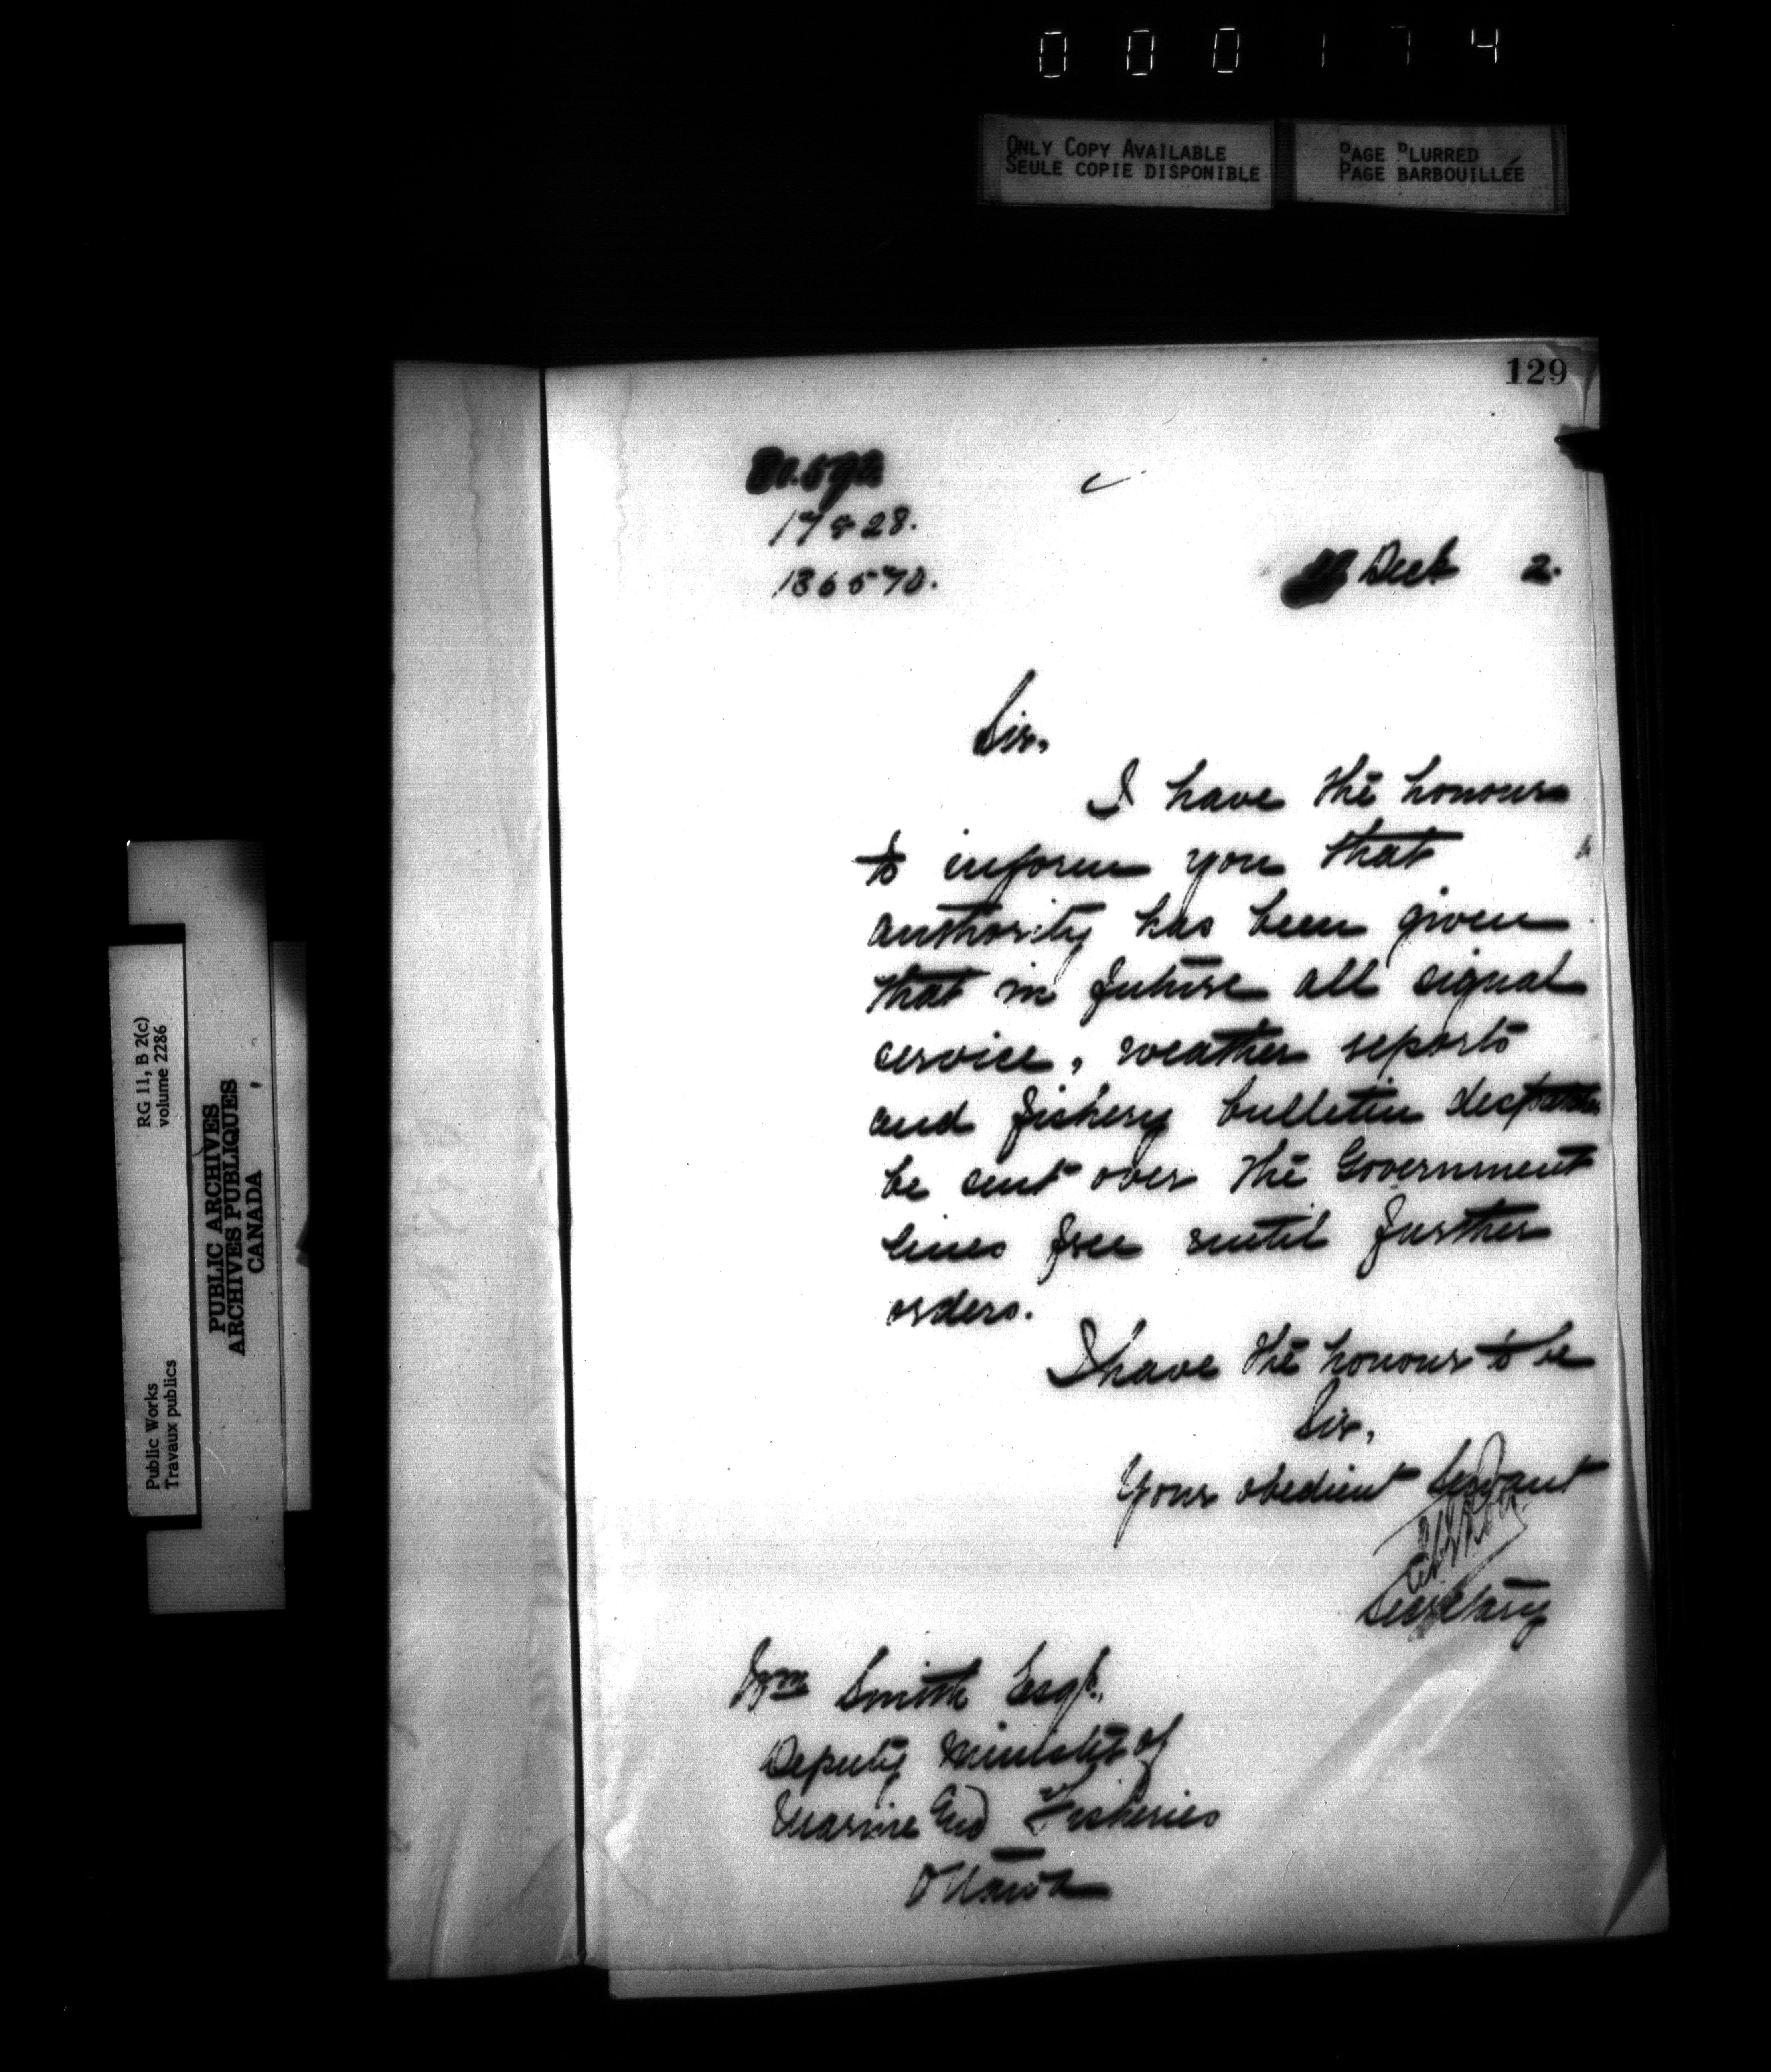 000174
ONLY COPY AVAILABLE
SEULE COPIE DISPONIBLE
PAGE BLURRED
PAGE BARBOUILLÉE
129
17828.
136570.
Decb 2.
Sir,
I have the honour
to inform you that
authority has been given
that in future all signal
service, weather reports
and fishery bulletin
be sent over the Government
lines free until further
orders.
I have the honour to be
Sir,
Your obedient Servant
Secretary
Wm Smith Esqr.
Deputy Minister of
Marine and Fisheries
Ottawa
RG 11, B 2(c)
volume 2286
Public Works
Travaux publics
PUBLIC ARCHIVES
ARCHIVES PUBLIQUES
CANADA